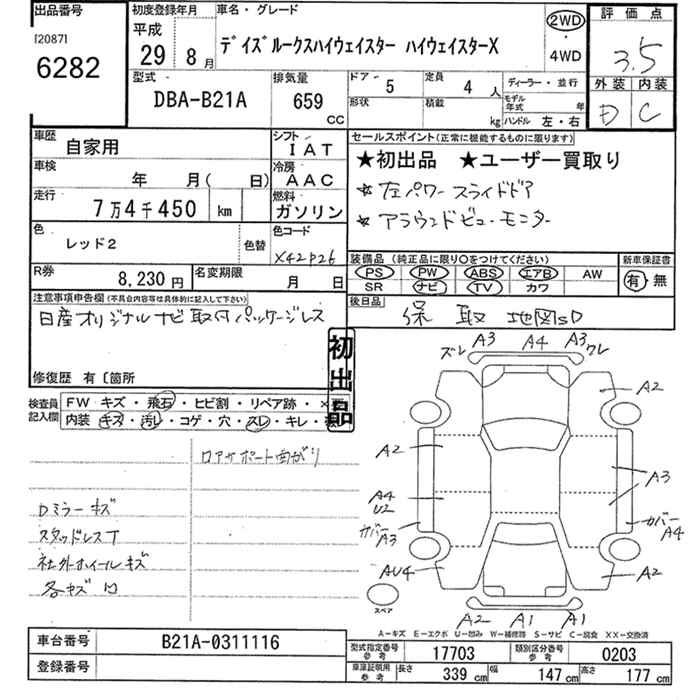 出品番号
[2087]
6282
初度登録年月
平成
29年 8月
車名・グレード
デイズルークスハイウェイスター ハイウェイスターX
2WD
・
4WD
評価点
3.5
外装 内装
D C
型式
DBA-B21A
排気量
659
CC
ドア 5
定員 4 人
形状
積載 kg
ディーラー・並行
モデル年式 年
ハンドル 左・右
車歴 自家用
シフト IAT
車検 年 月( 日)
冷房 AAC
走行 7万4千450 km
燃料 ガソリン
色 レッド2
色替
色コード X42P26
R券 8,230円
名変期限 月 日
セールスポイント(正常に機能するものに限ります)
★初出品 ★ユーザー買取り
☆左パワースライドドア
☆アラウンドビューモニター
装備品(純正品に限り○をつけてください)
PS PW ABS エアB AW
SR ナビ TV カワ
新車保証書
有・無
後日品 保 取 地図SD
注意事項申告欄(不具合内容等は具体的に記入して下さい)
日産オリジナルナビ取付パッケージレス
修復歴 有〔箇所
初出品
検査員記入欄
FW キズ・飛石・ヒビ割・リペア跡・×
内装 キズ・汚レ・コゲ・穴・スレ・キレ・
ロアサポート曲がり
Dミラーキズ
スタッドレスT
社外ホイールキズ
各キズ凹
ズレ A3 A4 A3 ズレ
A2
A2
A3
A4
U2
カバー
A3
カバー
A4
AU4
A2
スペア
A2 A1 A1
A-キズ E-エクボ U-凹み W-補修跡 S-サビ C-腐食 XX-交換済
車台番号 B21A-0311116
登録番号
型式指定番号 参考 17703
類別区分番号 参考 0203
車庫証明用 参考
長さ 339 cm
幅 147 cm
高さ 177 cm